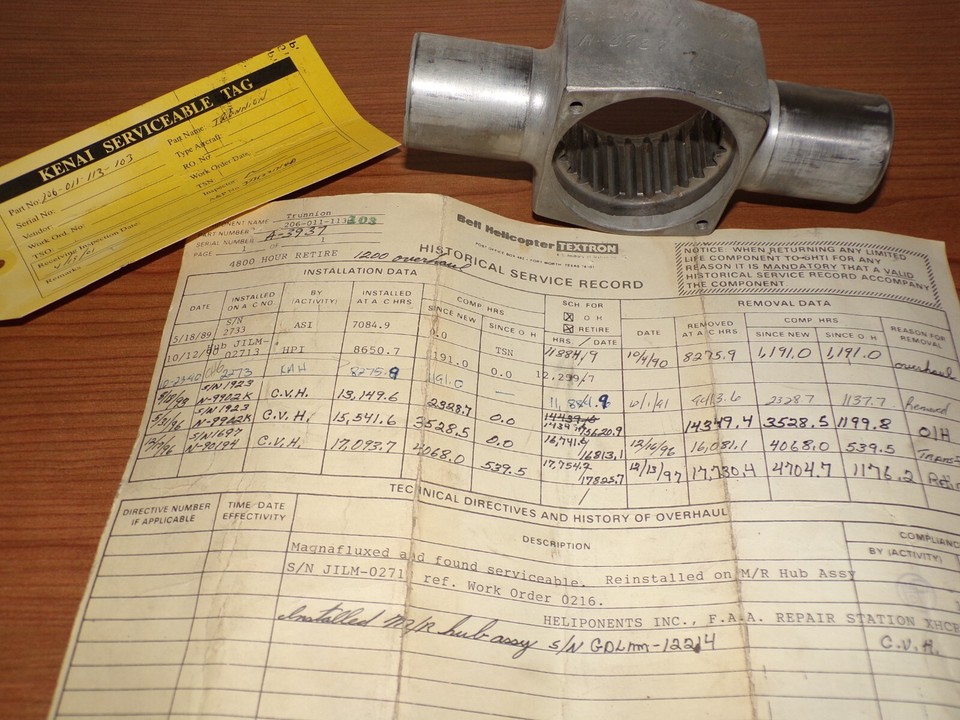 KENAI SERVICEABLE TAG
Part No. 206-011-113-103
Part Name. TRUNNION
Serial No.
Type Aircraft
Vendor
RO. No.
Work Ord. No.
Work Order Date
TSN.
TSO.
Inspector
Receiving Inspection Date
Remarks
A-3937
NAME Trunnion
NUMBER 206-011-113 103
SERIAL NUMBER A-3937
PAGE 1 OF 1
4800 HOUR RETIRE 1200 overhaul
Bell Helicopter TEXTRON
HISTORICAL SERVICE RECORD
NOTICE WHEN RETURNING ANY LIMITED
LIFE COMPONENT TO BHTI FOR ANY
REASON IT IS MANDATORY THAT A VALID
HISTORICAL SERVICE RECORD ACCOMPANY
THE COMPONENT.
INSTALLATION DATA
REMOVAL DATA
DATE
INSTALLED ON A/C NO.
BY (ACTIVITY)
INSTALLED AT A/C HRS
COMP. HRS
SINCE NEW
SINCE O.H
SCH FOR
O H
RETIRE
HRS / DATE
DATE
REMOVED AT A/C HRS
COMP. HRS
SINCE NEW
SINCE O.H
REASON FOR REMOVAL
5/18/89 S/N 2733 ASI 7084.9 0.0 TSN 11884.9 10/4/90 8275.9 1,191.0 1,191.0 overhaul
Hub JILM-02713 HPI 8650.7 1191.0 0.0
2273 KAH 8275.9 1191.0 — 11,884.9 9413.6 2328.7 1137.7
S/N 1923 N-9902K C.V.H. 13,149.6 2328.7 0.0 15620.9 14349.4 3528.5 1199.8 O/H
5/31/96 S/N 1923 N-9902K C.V.H. 15,541.6 3528.5 0.0 16,741.6 16813.1 12/16/96 16,081.1 4068.0 539.5
N-90194 C.V.H. 17,093.7 4068.0 539.5 17,754.2 17825.7 12/13/97 17,730.4 4704.7 1176.2
TECHNICAL DIRECTIVES AND HISTORY OF OVERHAUL
DIRECTIVE NUMBER IF APPLICABLE
TIME/DATE EFFECTIVITY
DESCRIPTION
COMPLIANC
BY (ACTIVITY)
Magnafluxed and found serviceable. Reinstalled on M/R Hub Assy
S/N JILM-0271 ref. Work Order 0216.
HELIPONENTS INC., F.A.A. REPAIR STATION XHCR
Installed M/R hub assy S/N GDLmm-12214 C.V.H.